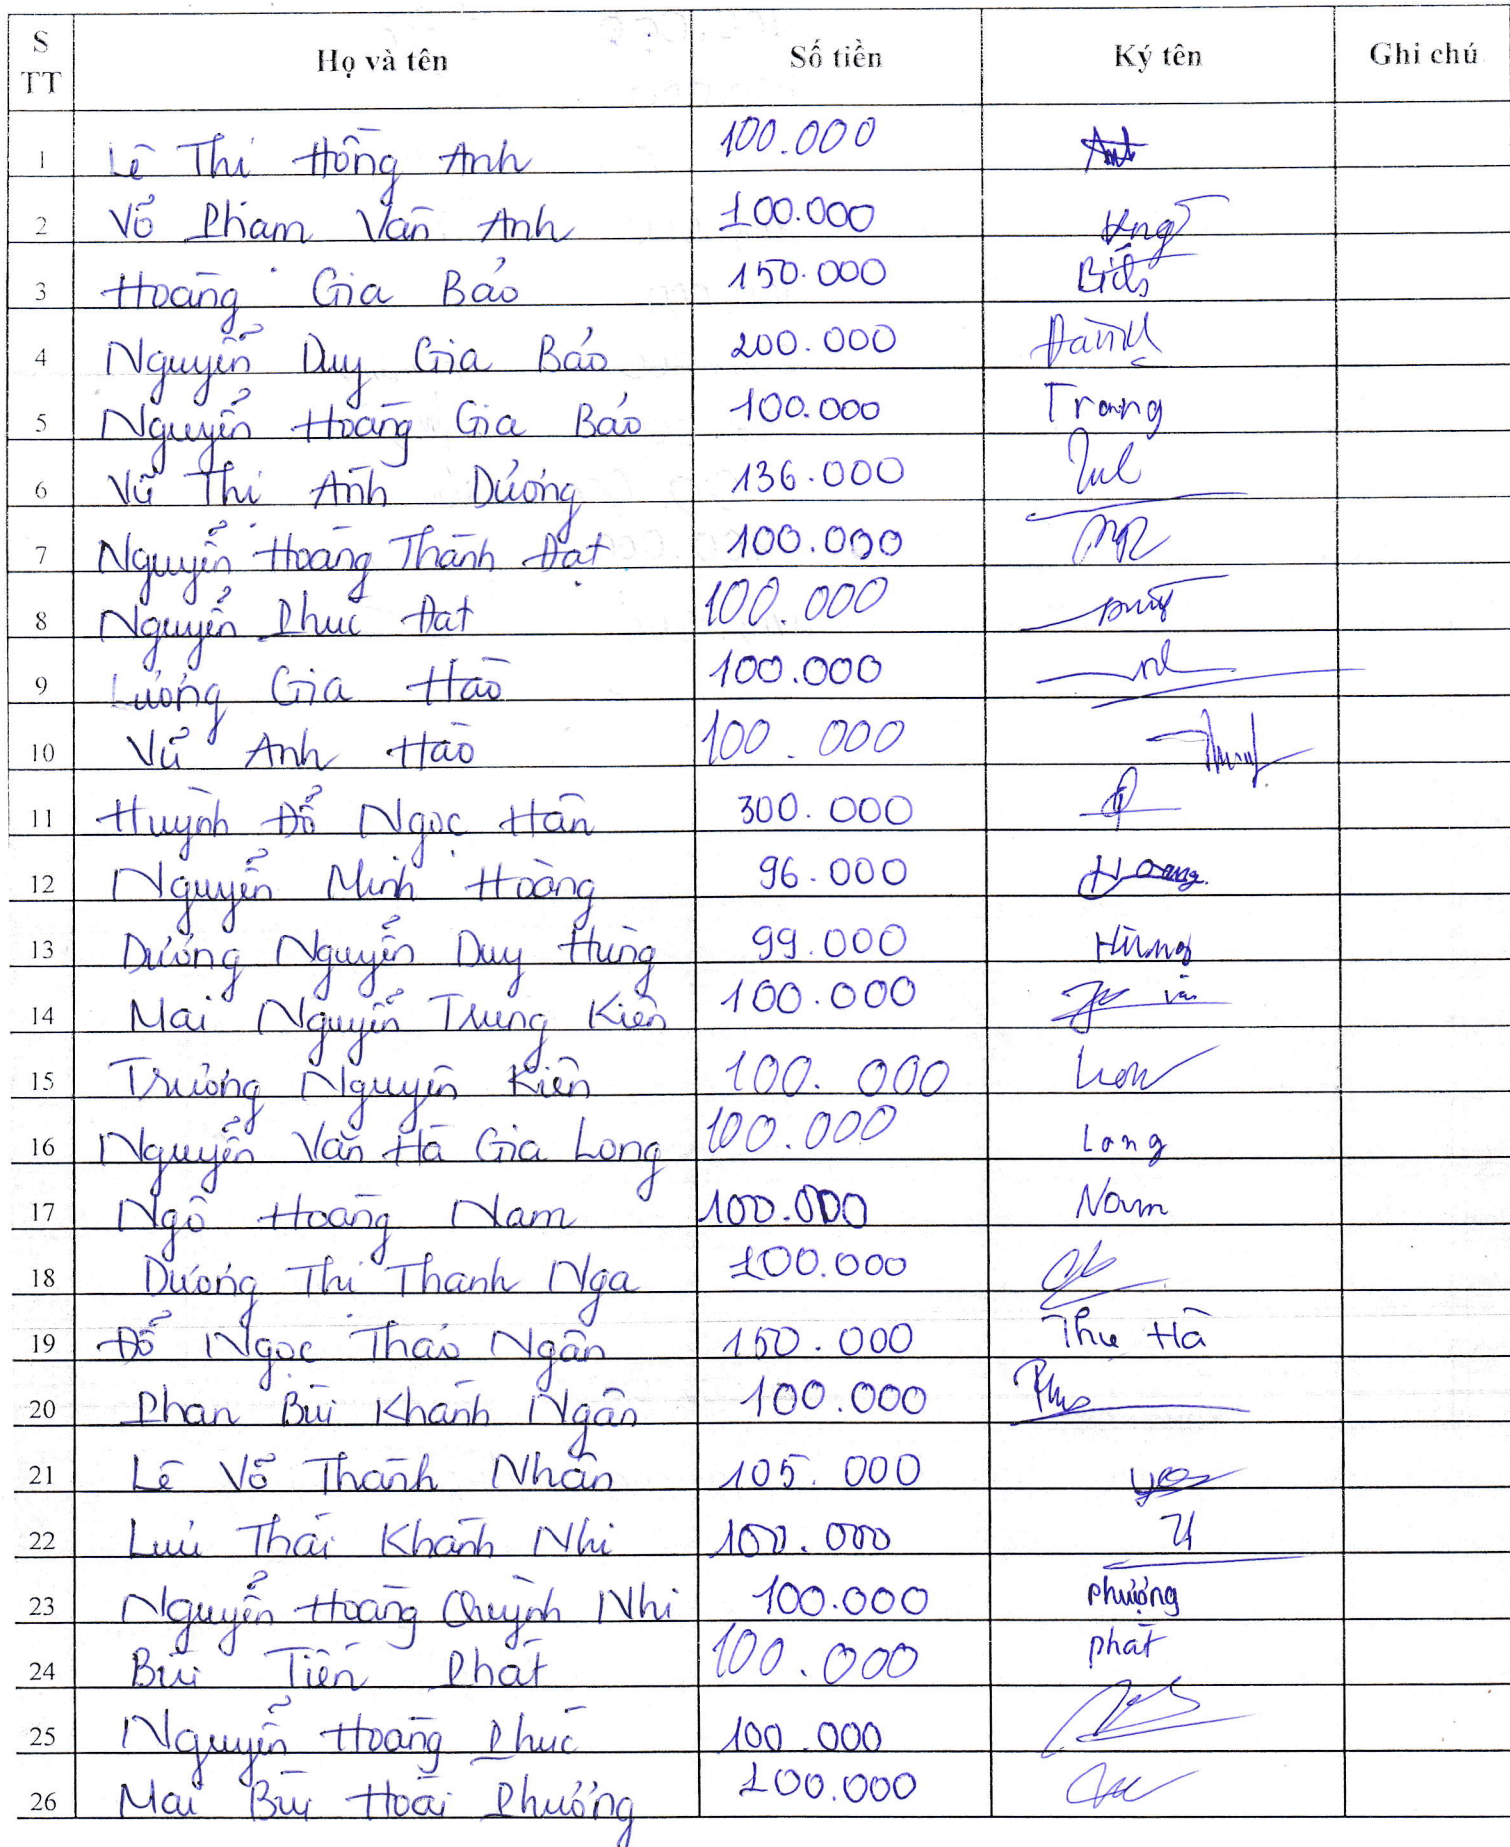 S TT Họ và tên Số tiền Ký tên Ghi chú
1 Lê Thị Hồng Anh 100.000 Anh
2 Võ Phạm Vân Anh 100.000
3 Hoàng Gia Bảo 150.000
4 Nguyễn Duy Gia Bảo 200.000
5 Nguyễn Hoàng Gia Bảo 100.000 Trang
6 Vũ Thị Ánh Dương 136.000
7 Nguyễn Hoàng Thành Đạt 100.000
8 Nguyễn Phúc Đạt 100.000
9 Lương Gia Hào 100.000
10 Vũ Anh Hào 100.000
11 Huỳnh Đỗ Ngọc Hân 300.000
12 Nguyễn Minh Hoàng 96.000 Hoang
13 Dương Nguyễn Duy Hùng 99.000 Hùng
14 Mai Nguyễn Trung Kiên 100.000
15 Trương Nguyên Kiên 100.000
16 Nguyễn Văn Hà Gia Long 100.000 Long
17 Ngô Hoàng Nam 100.000 Nam
18 Dương Thị Thanh Nga 100.000
19 Đỗ Ngọc Thảo Ngân 150.000 Thu Hà
20 Phan Bùi Khánh Ngân 100.000
21 Lê Võ Thành Nhân 105.000
22 Lưu Thái Khánh Nhi 100.000
23 Nguyễn Hoàng Quỳnh Nhi 100.000 Phượng
24 Bùi Tiến Phát 100.000 phát
25 Nguyễn Hoàng Phúc 100.000
26 Mai Bùi Hoài Phương 100.000